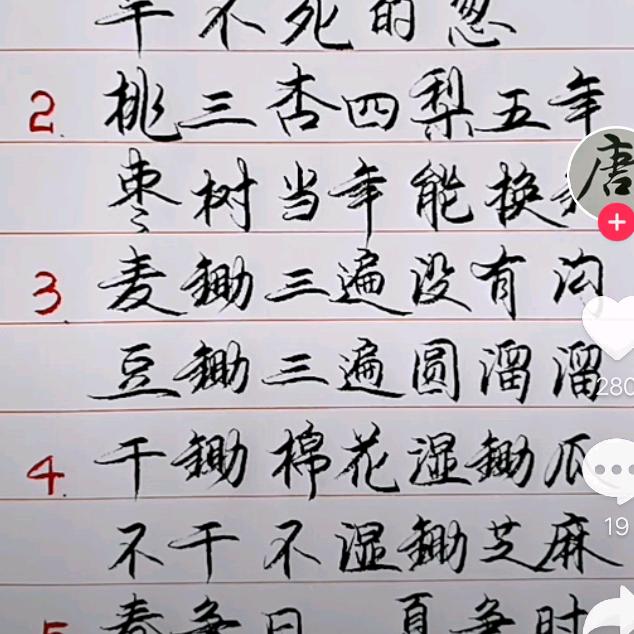 干不死的葱
2. 桃三杏四梨五年
枣树当年能换
3. 麦鋤三遍没有沟
豆鋤三遍圆溜溜
4. 干鋤棉花湿鋤瓜
不干不湿鋤芝麻
5 春争日 夏争时
唐
280
19